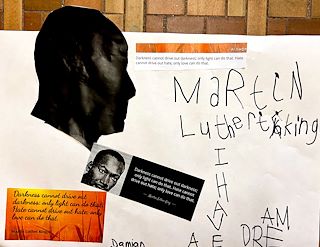 Darkness cannot drive out darkness; only light can do that. Hate
cannot drive out hate; only love can do that.
MaRtIN
Luther king
I HAVE
A DREAM
Darkness cannot drive out darkness;
only light can do that. Hate cannot
drive out hate; only love can do that.
Darkness cannot drive out
darkness: only light can do that.
Hate cannot drive out hate: only
love can do that.
Martin Luther King
Damian